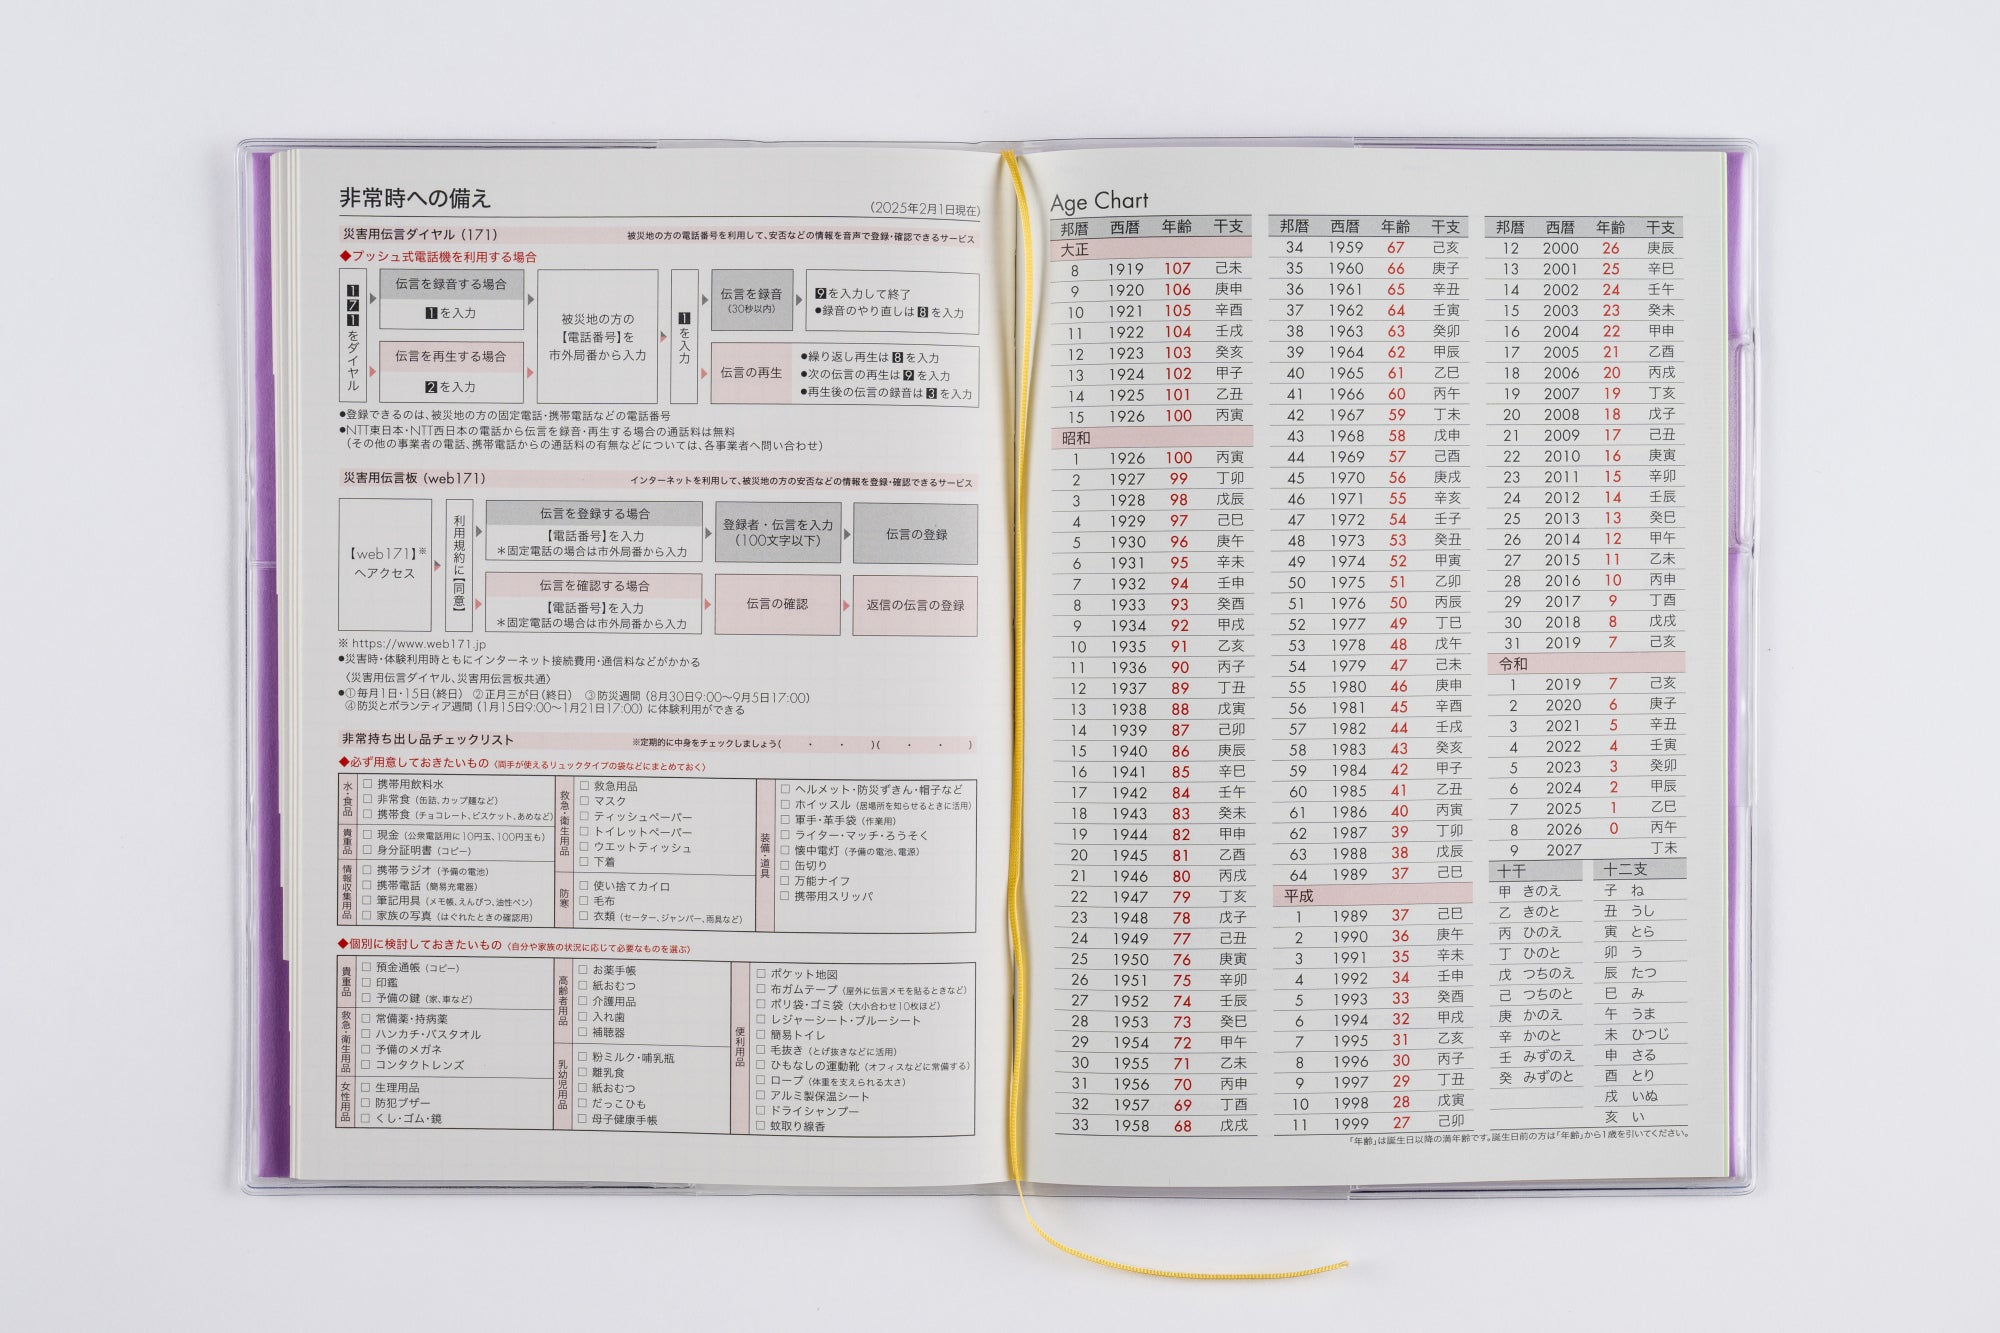 非常時への備え
(2025年2月1日現在)
災害用伝言ダイヤル (171)
被災地の方の電話番号を利用して、安否などの情報を音声で登録・確認できるサービス
◆プッシュ式電話機を利用する場合
171をダイヤル
伝言を録音する場合
1を入力
伝言を再生する場合
2を入力
被災地の方の
【電話番号】を
市外局番から入力
1を入力
伝言を録音
(30秒以内)
9を入力して終了
●録音のやり直しは8を入力
伝言の再生
●繰り返し再生は8を入力
●次の伝言の再生は9を入力
●再生後の伝言の録音は3を入力
●登録できるのは、被災地の方の固定電話・携帯電話などの電話番号
●NTT東日本・NTT西日本の電話から伝言を録音・再生する場合の通話料は無料
(その他の事業者の電話、携帯電話からの通話料の有無などについては、各事業者へ問い合わせ)
災害用伝言板 (web171)
インターネットを利用して、被災地の方の安否などの情報を登録・確認できるサービス
【web171】※
へアクセス
利用規約に【同意】
伝言を登録する場合
【電話番号】を入力
＊固定電話の場合は市外局番から入力
登録者・伝言を入力
(100文字以下)
伝言の登録
伝言を確認する場合
【電話番号】を入力
＊固定電話の場合は市外局番から入力
伝言の確認
返信の伝言の登録
※ https://www.web171.jp
●災害時・体験利用時ともにインターネット接続費用・通信料などがかかる
〈災害用伝言ダイヤル、災害用伝言板共通〉
●①毎月1日・15日(終日) ②正月三が日(終日) ③防災週間 (8月30日9:00〜9月5日17:00)
④防災とボランティア週間 (1月15日9:00〜1月21日17:00) に体験利用ができる
非常持ち出し品チェックリスト
※定期的に中身をチェックしましょう( ・ ・ )( ・ ・ )
◆必ず用意しておきたいもの 〈両手が使えるリュックタイプの袋などにまとめておく〉
水・食品
□ 携帯用飲料水
□ 非常食 (缶詰、カップ麺など)
□ 携帯食 (チョコレート、ビスケット、あめなど)
貴重品
□ 現金 (公衆電話用に10円玉、100円玉も)
□ 身分証明書 (コピー)
情報収集用品
□ 携帯ラジオ (予備の電池)
□ 携帯電話 (簡易充電器)
□ 筆記用具 (メモ帳、えんぴつ、油性ペン)
□ 家族の写真 (はぐれたときの確認用)
救急・衛生用品
□ 救急用品
□ マスク
□ ティッシュペーパー
□ トイレットペーパー
□ ウエットティッシュ
□ 下着
防寒
□ 使い捨てカイロ
□ 毛布
□ 衣類 (セーター、ジャンパー、雨具など)
装備・道具
□ ヘルメット・防災ずきん・帽子など
□ ホイッスル (居場所を知らせるときに活用)
□ 軍手・革手袋 (作業用)
□ ライター・マッチ・ろうそく
□ 懐中電灯 (予備の電池、電源)
□ 缶切り
□ 万能ナイフ
□ 携帯用スリッパ
◆個別に検討しておきたいもの 〈自分や家族の状況に応じて必要なものを選ぶ〉
貴重品
□ 預金通帳 (コピー)
□ 印鑑
□ 予備の鍵 (家、車など)
救急・衛生用品
□ 常備薬・持病薬
□ ハンカチ・バスタオル
□ 予備のメガネ
□ コンタクトレンズ
女性用品
□ 生理用品
□ 防犯ブザー
□ くし・ゴム・鏡
高齢者用品
□ お薬手帳
□ 紙おむつ
□ 介護用品
□ 入れ歯
□ 補聴器
乳幼児用品
□ 粉ミルク・哺乳瓶
□ 離乳食
□ 紙おむつ
□ だっこひも
□ 母子健康手帳
便利用品
□ ポケット地図
□ 布ガムテープ (屋外に伝言メモを貼るときなど)
□ ポリ袋・ゴミ袋 (大小合わせ10枚ほど)
□ レジャーシート・ブルーシート
□ 簡易トイレ
□ 毛抜き (とげ抜きなどに活用)
□ ひもなしの運動靴 (オフィスなどに常備する)
□ ロープ (体重を支えられる太さ)
□ アルミ製保温シート
□ ドライシャンプー
□ 蚊取り線香
Age Chart
邦暦 西暦 年齢 干支
大正
8 1919 107 己未
9 1920 106 庚申
10 1921 105 辛酉
11 1922 104 壬戌
12 1923 103 癸亥
13 1924 102 甲子
14 1925 101 乙丑
15 1926 100 丙寅
昭和
1 1926 100 丙寅
2 1927 99 丁卯
3 1928 98 戊辰
4 1929 97 己巳
5 1930 96 庚午
6 1931 95 辛未
7 1932 94 壬申
8 1933 93 癸酉
9 1934 92 甲戌
10 1935 91 乙亥
11 1936 90 丙子
12 1937 89 丁丑
13 1938 88 戊寅
14 1939 87 己卯
15 1940 86 庚辰
16 1941 85 辛巳
17 1942 84 壬午
18 1943 83 癸未
19 1944 82 甲申
20 1945 81 乙酉
21 1946 80 丙戌
22 1947 79 丁亥
23 1948 78 戊子
24 1949 77 己丑
25 1950 76 庚寅
26 1951 75 辛卯
27 1952 74 壬辰
28 1953 73 癸巳
29 1954 72 甲午
30 1955 71 乙未
31 1956 70 丙申
32 1957 69 丁酉
33 1958 68 戊戌
邦暦 西暦 年齢 干支
34 1959 67 己亥
35 1960 66 庚子
36 1961 65 辛丑
37 1962 64 壬寅
38 1963 63 癸卯
39 1964 62 甲辰
40 1965 61 乙巳
41 1966 60 丙午
42 1967 59 丁未
43 1968 58 戊申
44 1969 57 己酉
45 1970 56 庚戌
46 1971 55 辛亥
47 1972 54 壬子
48 1973 53 癸丑
49 1974 52 甲寅
50 1975 51 乙卯
51 1976 50 丙辰
52 1977 49 丁巳
53 1978 48 戊午
54 1979 47 己未
55 1980 46 庚申
56 1981 45 辛酉
57 1982 44 壬戌
58 1983 43 癸亥
59 1984 42 甲子
60 1985 41 乙丑
61 1986 40 丙寅
62 1987 39 丁卯
63 1988 38 戊辰
64 1989 37 己巳
平成
1 1989 37 己巳
2 1990 36 庚午
3 1991 35 辛未
4 1992 34 壬申
5 1993 33 癸酉
6 1994 32 甲戌
7 1995 31 乙亥
8 1996 30 丙子
9 1997 29 丁丑
10 1998 28 戊寅
11 1999 27 己卯
邦暦 西暦 年齢 干支
12 2000 26 庚辰
13 2001 25 辛巳
14 2002 24 壬午
15 2003 23 癸未
16 2004 22 甲申
17 2005 21 乙酉
18 2006 20 丙戌
19 2007 19 丁亥
20 2008 18 戊子
21 2009 17 己丑
22 2010 16 庚寅
23 2011 15 辛卯
24 2012 14 壬辰
25 2013 13 癸巳
26 2014 12 甲午
27 2015 11 乙未
28 2016 10 丙申
29 2017 9 丁酉
30 2018 8 戊戌
31 2019 7 己亥
令和
1 2019 7 己亥
2 2020 6 庚子
3 2021 5 辛丑
4 2022 4 壬寅
5 2023 3 癸卯
6 2024 2 甲辰
7 2025 1 乙巳
8 2026 0 丙午
9 2027 丁未
十干
甲 きのえ
乙 きのと
丙 ひのえ
丁 ひのと
戊 つちのえ
己 つちのと
庚 かのえ
辛 かのと
壬 みずのえ
癸 みずのと
十二支
子 ね
丑 うし
寅 とら
卯 う
辰 たつ
巳 み
午 うま
未 ひつじ
申 さる
酉 とり
戌 いぬ
亥 い
「年齢」は誕生日以降の満年齢です。誕生日前の方は「年齢」から1歳を引いてください。